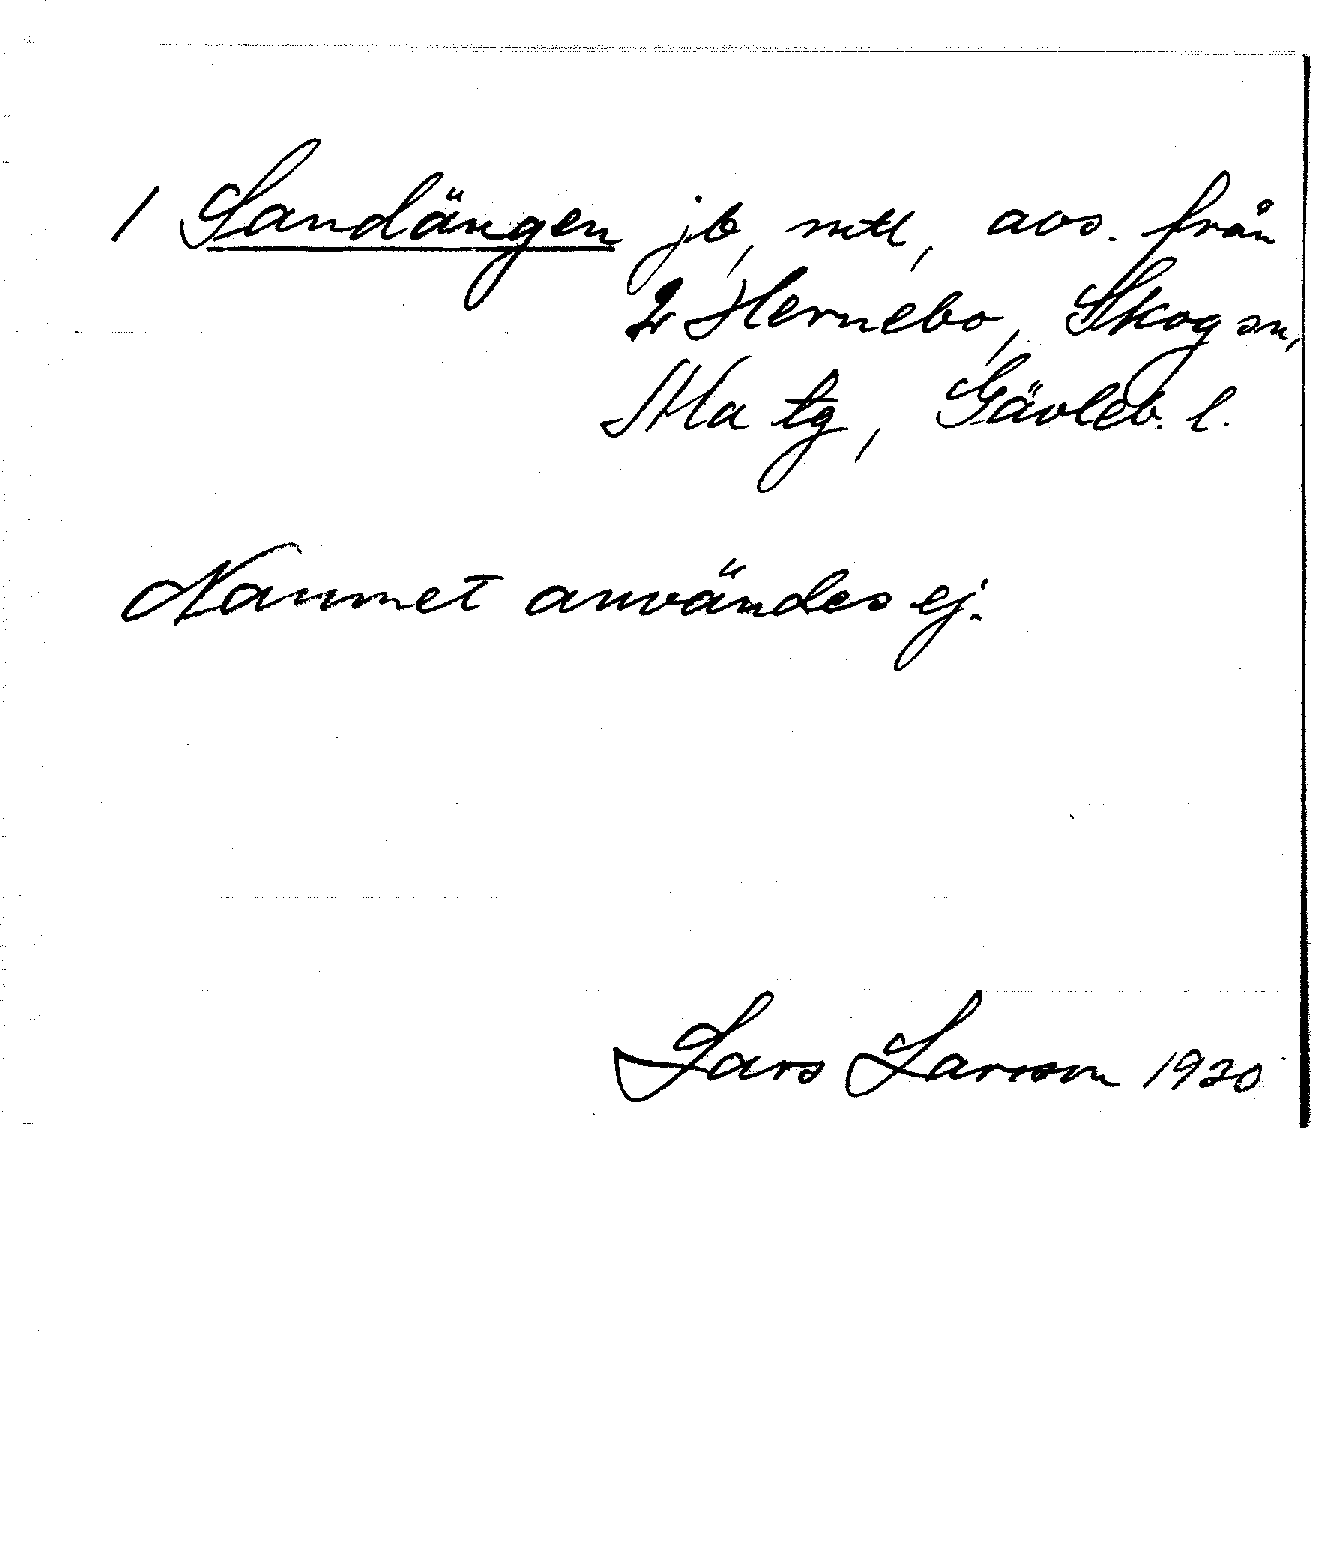 1 Sandängen jb, mtl, avs. från
2 Hernebo, Skog sn,
Ala tg, Gävleb. l.
Namnet användes ej.
Lars Larsson 1930